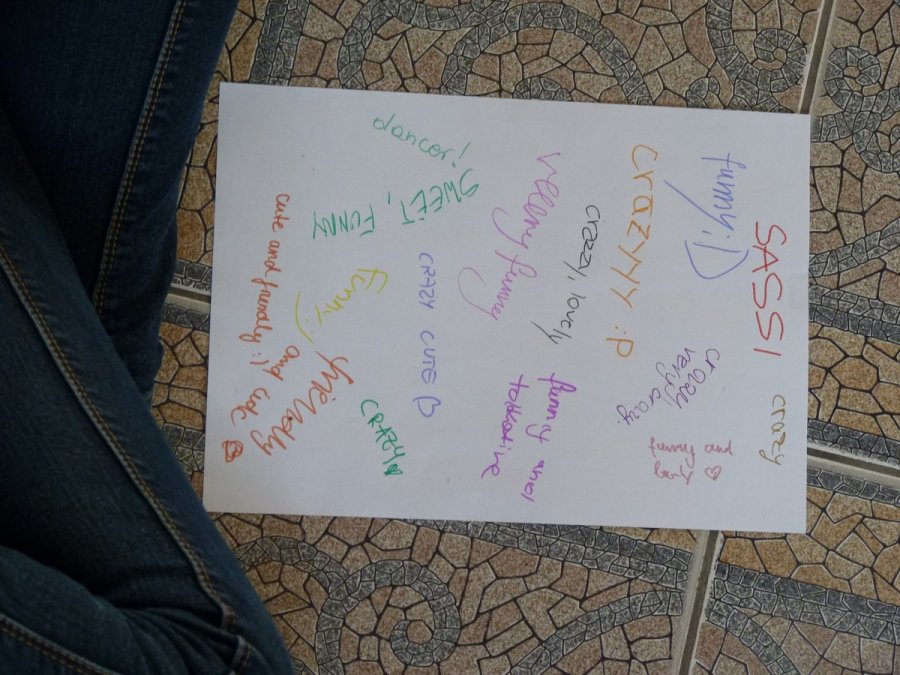 SASSI
crazy
funny ;D
crazy
very crazy.
funny and
CRAZYYY :P
crazzy, lovely
funny and
talkative
veeery funny
dancer!
SWEET, FUNNY
CRAZY CUTE
CRAZY
funny :)
friendly
and cute
cute and friendly :)